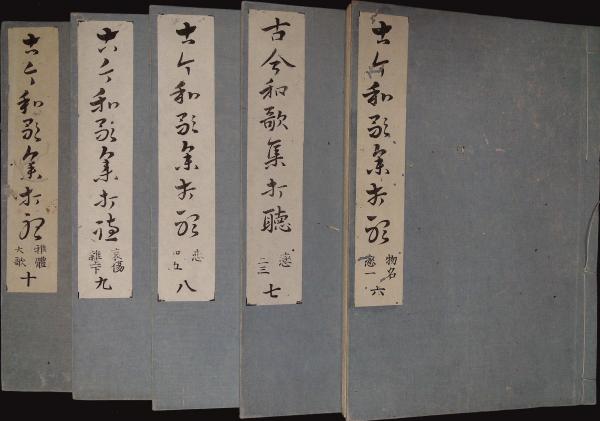 古今和歌集打聴
物名
戀一
六
古今和歌集打聽
戀
二三
七
古今和歌集打聴
恋
四五
八
古今和歌集打聴
哀傷
雜上下
九
古今和歌集打聴
雑體
大歌
十